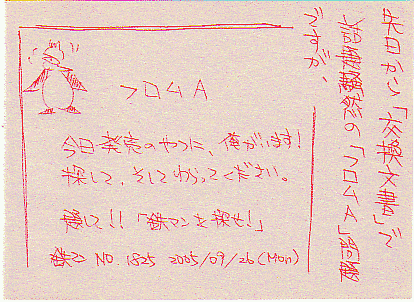 先日から「交換文書」で
の「フロムA」
ですが、
フロムA
今日発売のやつに、俺がいます!
探して、そしてわらってください。
題して!!「鉄マンを探せ!」
鉄マン NO.1825 2005/09/26(Mon)